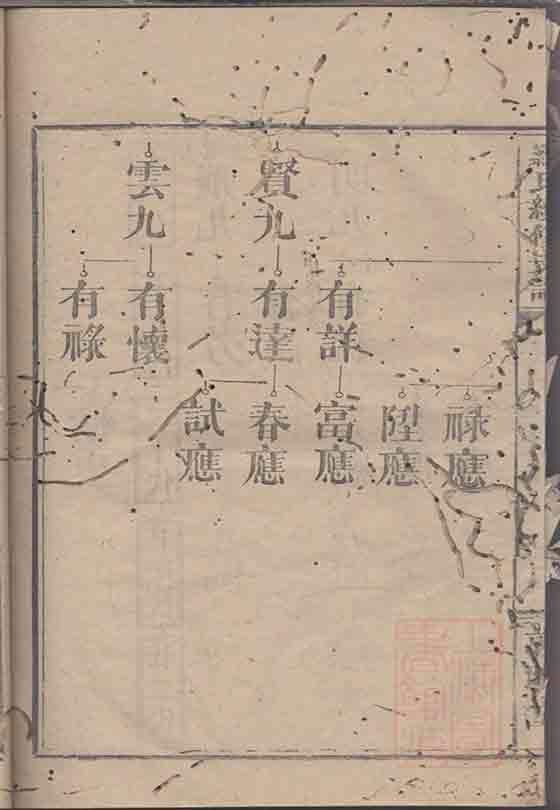 賢九
雲九
有詳
有達
有懷
有祿
祿應
陞應
富應
春應
試應